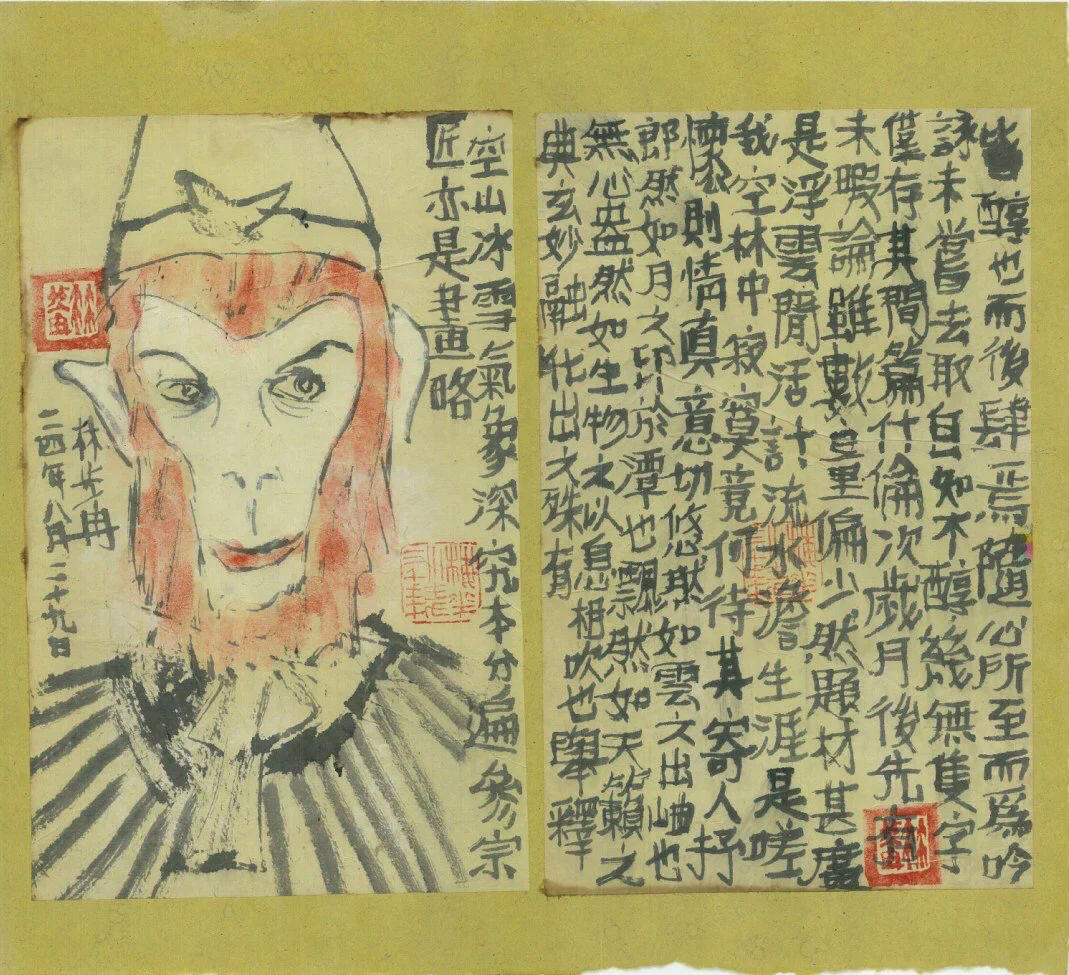 皆醇也而後肆焉隨心所至而為吟
詠未嘗去取自知不醇幾無隻字
僅存其間篇什倫次歲月後先
未暇論雖數量偏少然題材甚廣
是浮雲閒活計流水澹生涯是嗟
我空林中寂寞竟何待其寄人抒
懷則情真意切悠然如雲之出岫也
郎然如月之印於潭也飄然如天籟之
無心盎然如生物之以息相吹也與釋
典玄妙融化出之殊有
空山冰雪氣象深究本分遍參宗
匠亦是畫略
林冉
二四年八月二十九日